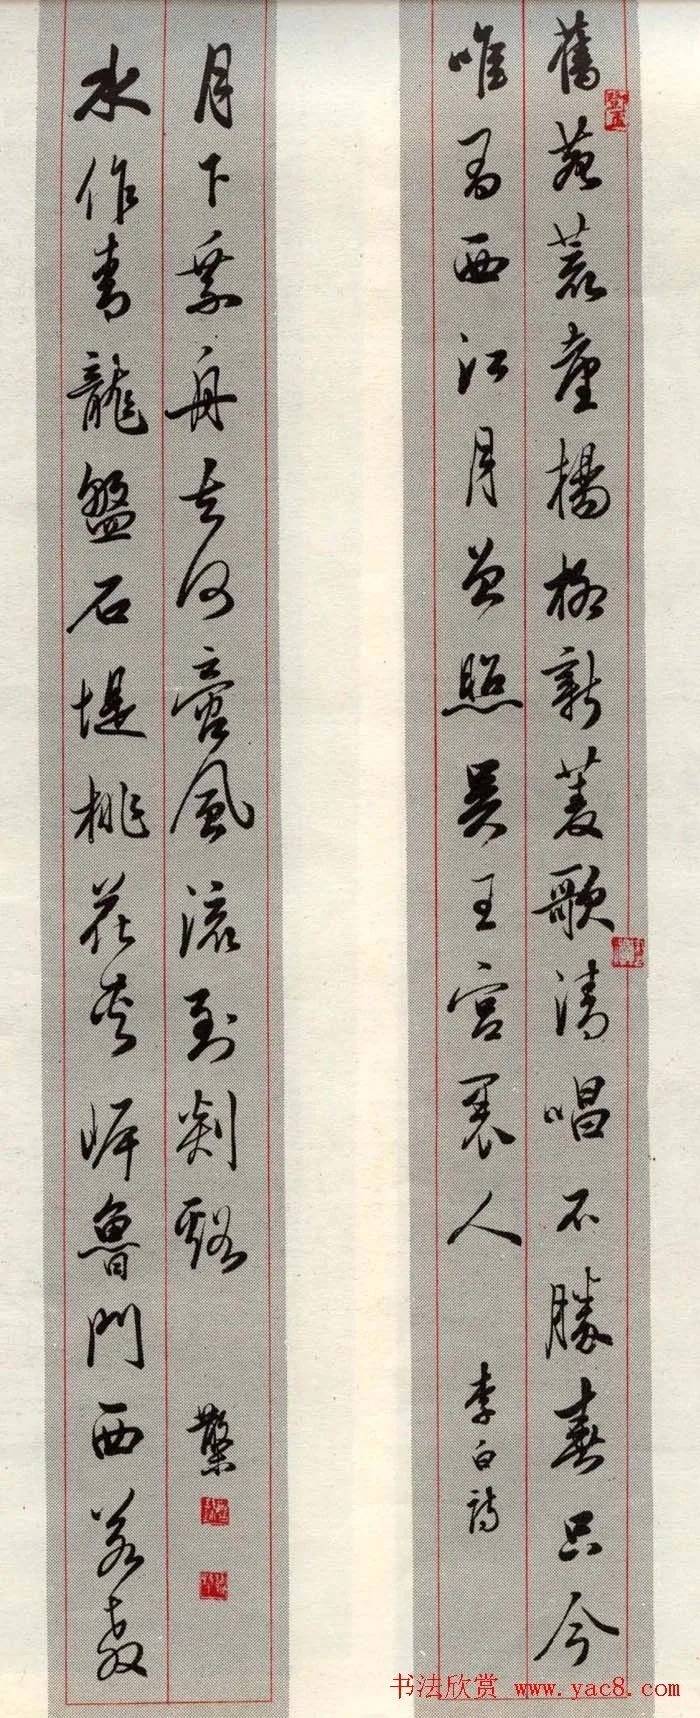 舊苑荒臺楊柳新菱歌清唱不勝春只今
唯有西江月曾照吳王宮裏人 李白詩
水作青龍盤石堤桃花夾岸魯門西若教
月下乘舟去何啻風流到剡谿
书法欣赏 www.yac8.com